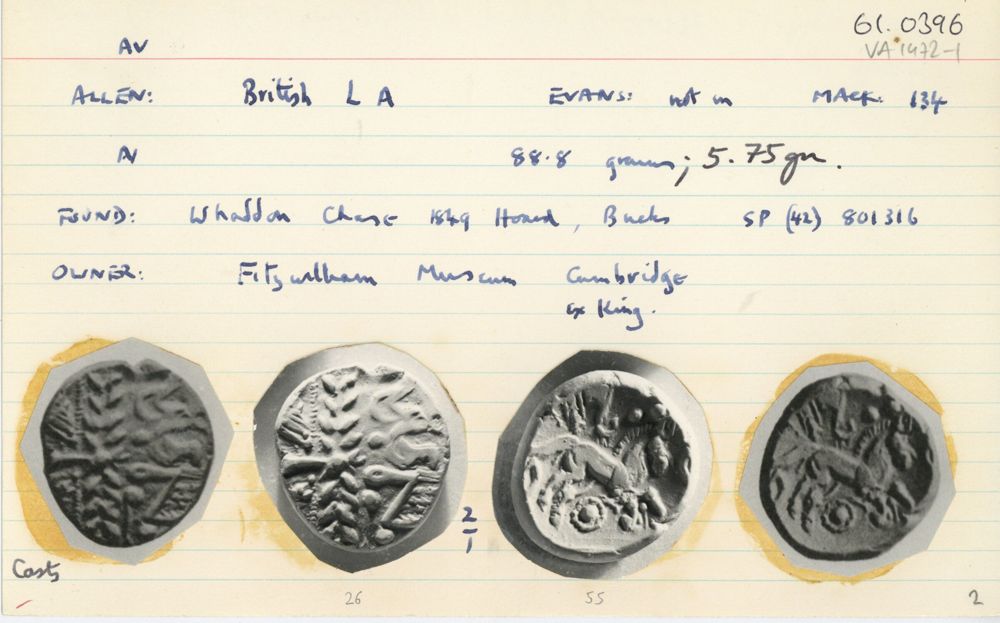 61.0396
AV
VA 1972-1
ALLEN: British L A EVANS: not in MACK: 134
AV 88.8 grains; 5.75 gm.
FOUND: Whaddon Chase 1849 Hoard, Bucks SP (42) 801316
OWNER: Fitzwilliam Museum Cambridge
ex King.
2
1
Casts
26 55 2